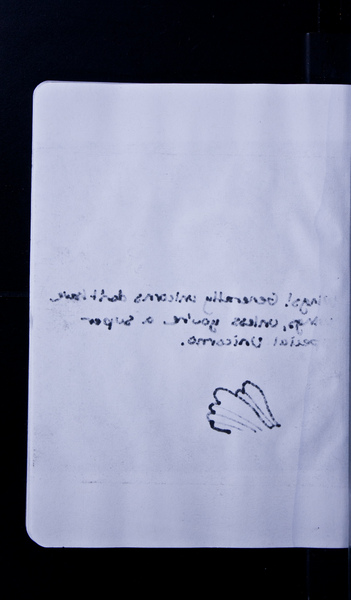 Wings! Generally unicorns don't have
wings, unless you're a super-
special Unicorno.